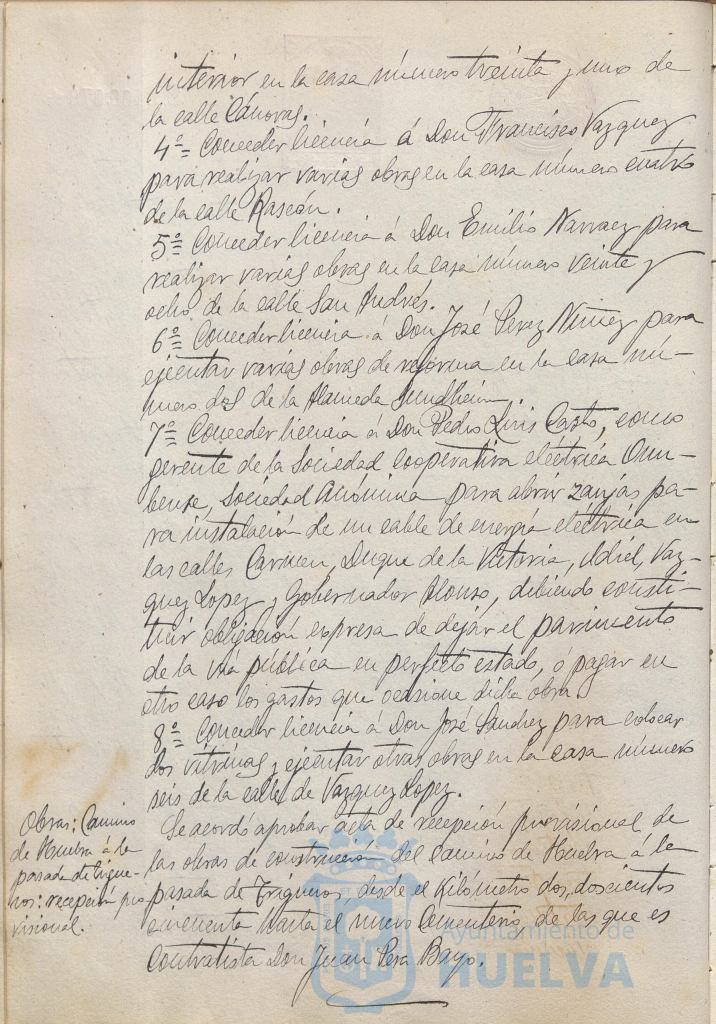 interior en la casa número treinta y uno de
la calle Cánovas.
4º= Conceder licencia á Don Francisco Vazquez
para realizar varias obras en la casa número cuatro
de la calle Rascón.
5º= Conceder licencia á Don Emilio Narvaez para
realizar varias obras en la casa número veinte y
ocho de la calle San Andrés.
6º= Conceder licencia á Don José Perez Nuñez para
ejecutar varias obras de reforma en la casa nú-
mero dos de la Alameda Sundheim.
7º= Conceder licencia á Don Pedro Luis Casto, como
gerente de la Sociedad Cooperativa eléctrica Onu-
bense, Sociedad Anónima para abrir zanjas pa-
ra instalación de un cable de energía eléctrica en
las calles Carmen, Duque de la Victoria, Udiel, Vaz-
quez Lopez y Gobernador Alonso, debiendo consti-
tuir obligación expresa de dejar el pavimento
de la vía pública en perfecto estado, ó pagar en
otro caso los gastos que ocasione dicha obra.
8º= Conceder licencia á Don José Sanchez para colocar
dos vitrinas y ejecutar otras obras en la casa número
seis de la calle de Vazquez Lopez.
Obras: Camino
de Huelva á la
pasada de Trigue-
ros: recepción pro
visional.
Se acordó aprobar acta de recepción provisional de
las obras de construcción del Camino de Huelva á la
pasada de Trigueros, desde el Kilómetro dos, doscientos
cincuenta hasta el nuevo Cementerio de las que es
Contratista Don Juan Pera Bayo.
Ayuntamiento de
HUELVA